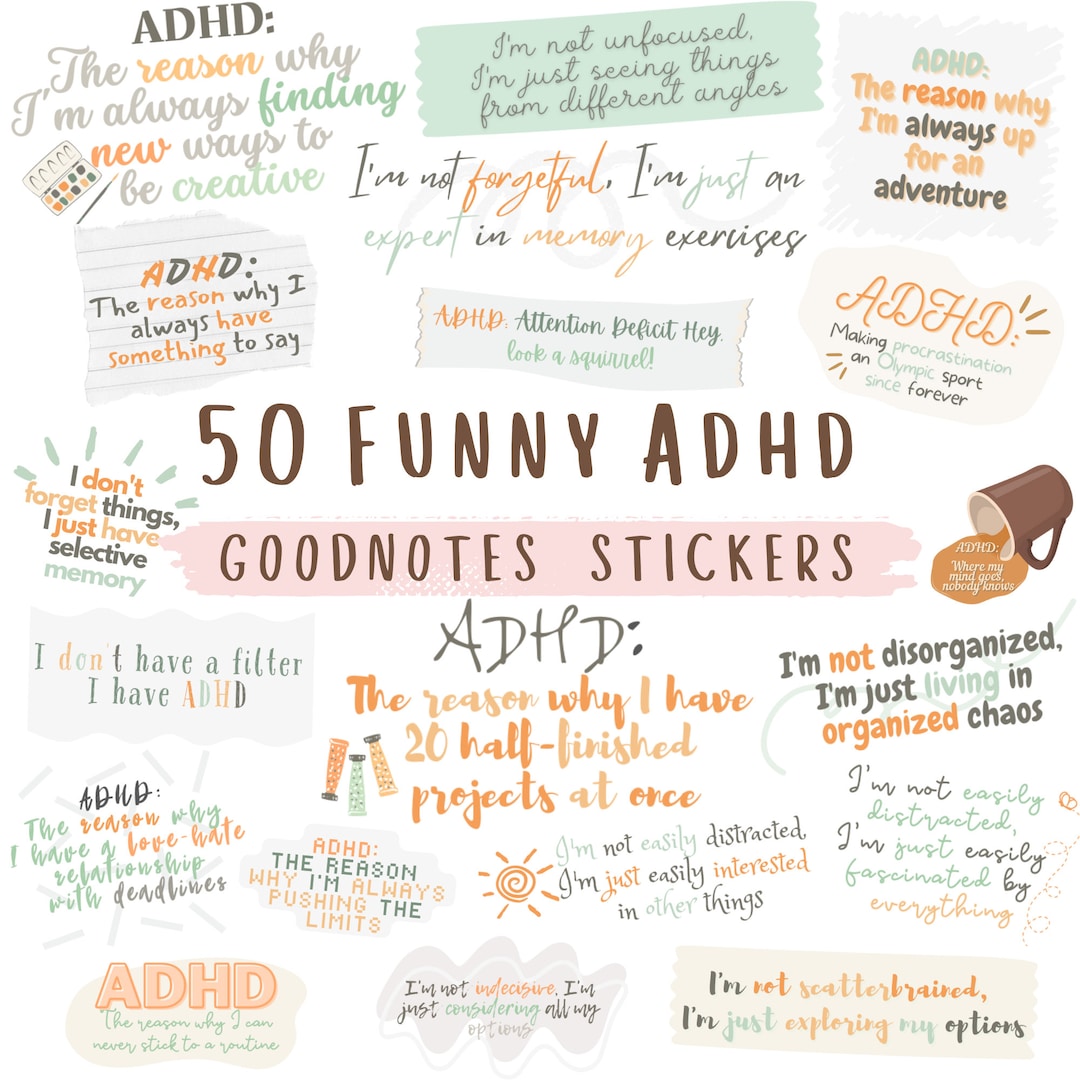 ADHD:
The reason why
I'm always finding
new ways to
be creative
I'm not unfocused,
I'm just seeing things
from different angles
ADHD:
The reason why
I'm always up
for an
adventure
I'm not forgetful, I'm just an
expert in memory exercises
ADHD:
The reason why I
always have
something to say
ADHD: Attention Deficit Hey,
look a squirrel!
ADHD:
Making procrastination
an Olympic sport
since forever
50 FUNNY ADHD
GOODNOTES STICKERS
I don't
forget things,
I just have
selective
memory
ADHD:
Where my
mind goes,
nobody knows
I don't have a filter
I have ADHD
ADHD:
The reason why I have
20 half-finished
projects at once
I'm not disorganized,
I'm just living in
organized chaos
ADHD:
The reason why
I have a love-hate
relationship
with deadlines
ADHD:
THE REASON
WHY I'M ALWAYS
PUSHING THE
LIMITS
I'm not easily distracted,
I'm just easily interested
in other things
I'm not easily
distracted,
I'm just easily
fascinated by
everything
ADHD
The reason why I can
never stick to a routine
I'm not indecisive, I'm
just considering all my
options
I'm not scatterbrained,
I'm just exploring my options